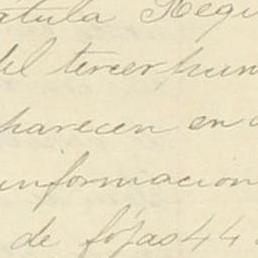 átula Requ
del tercer pun
parecen en
informacion
de fójas 44